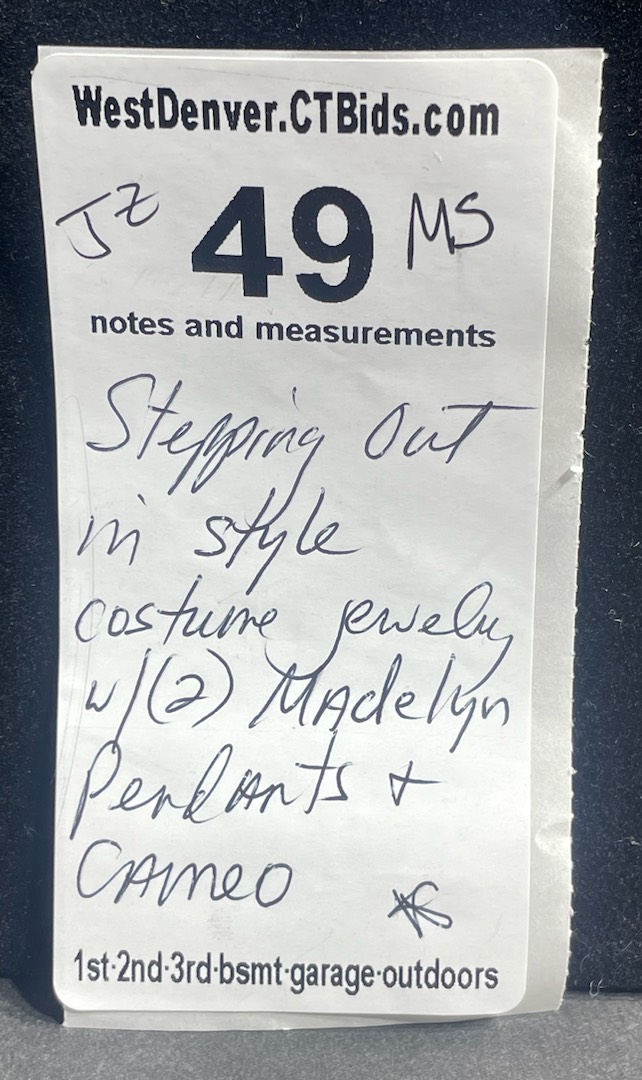 WestDenver.CTBids.com
JZ 49 MS
notes and measurements
Stepping Out
in style
costume jewelry
w/(2) MAdelyn
PendAnts +
CAmeo
1st·2nd·3rd·bsmt·garage·outdoors